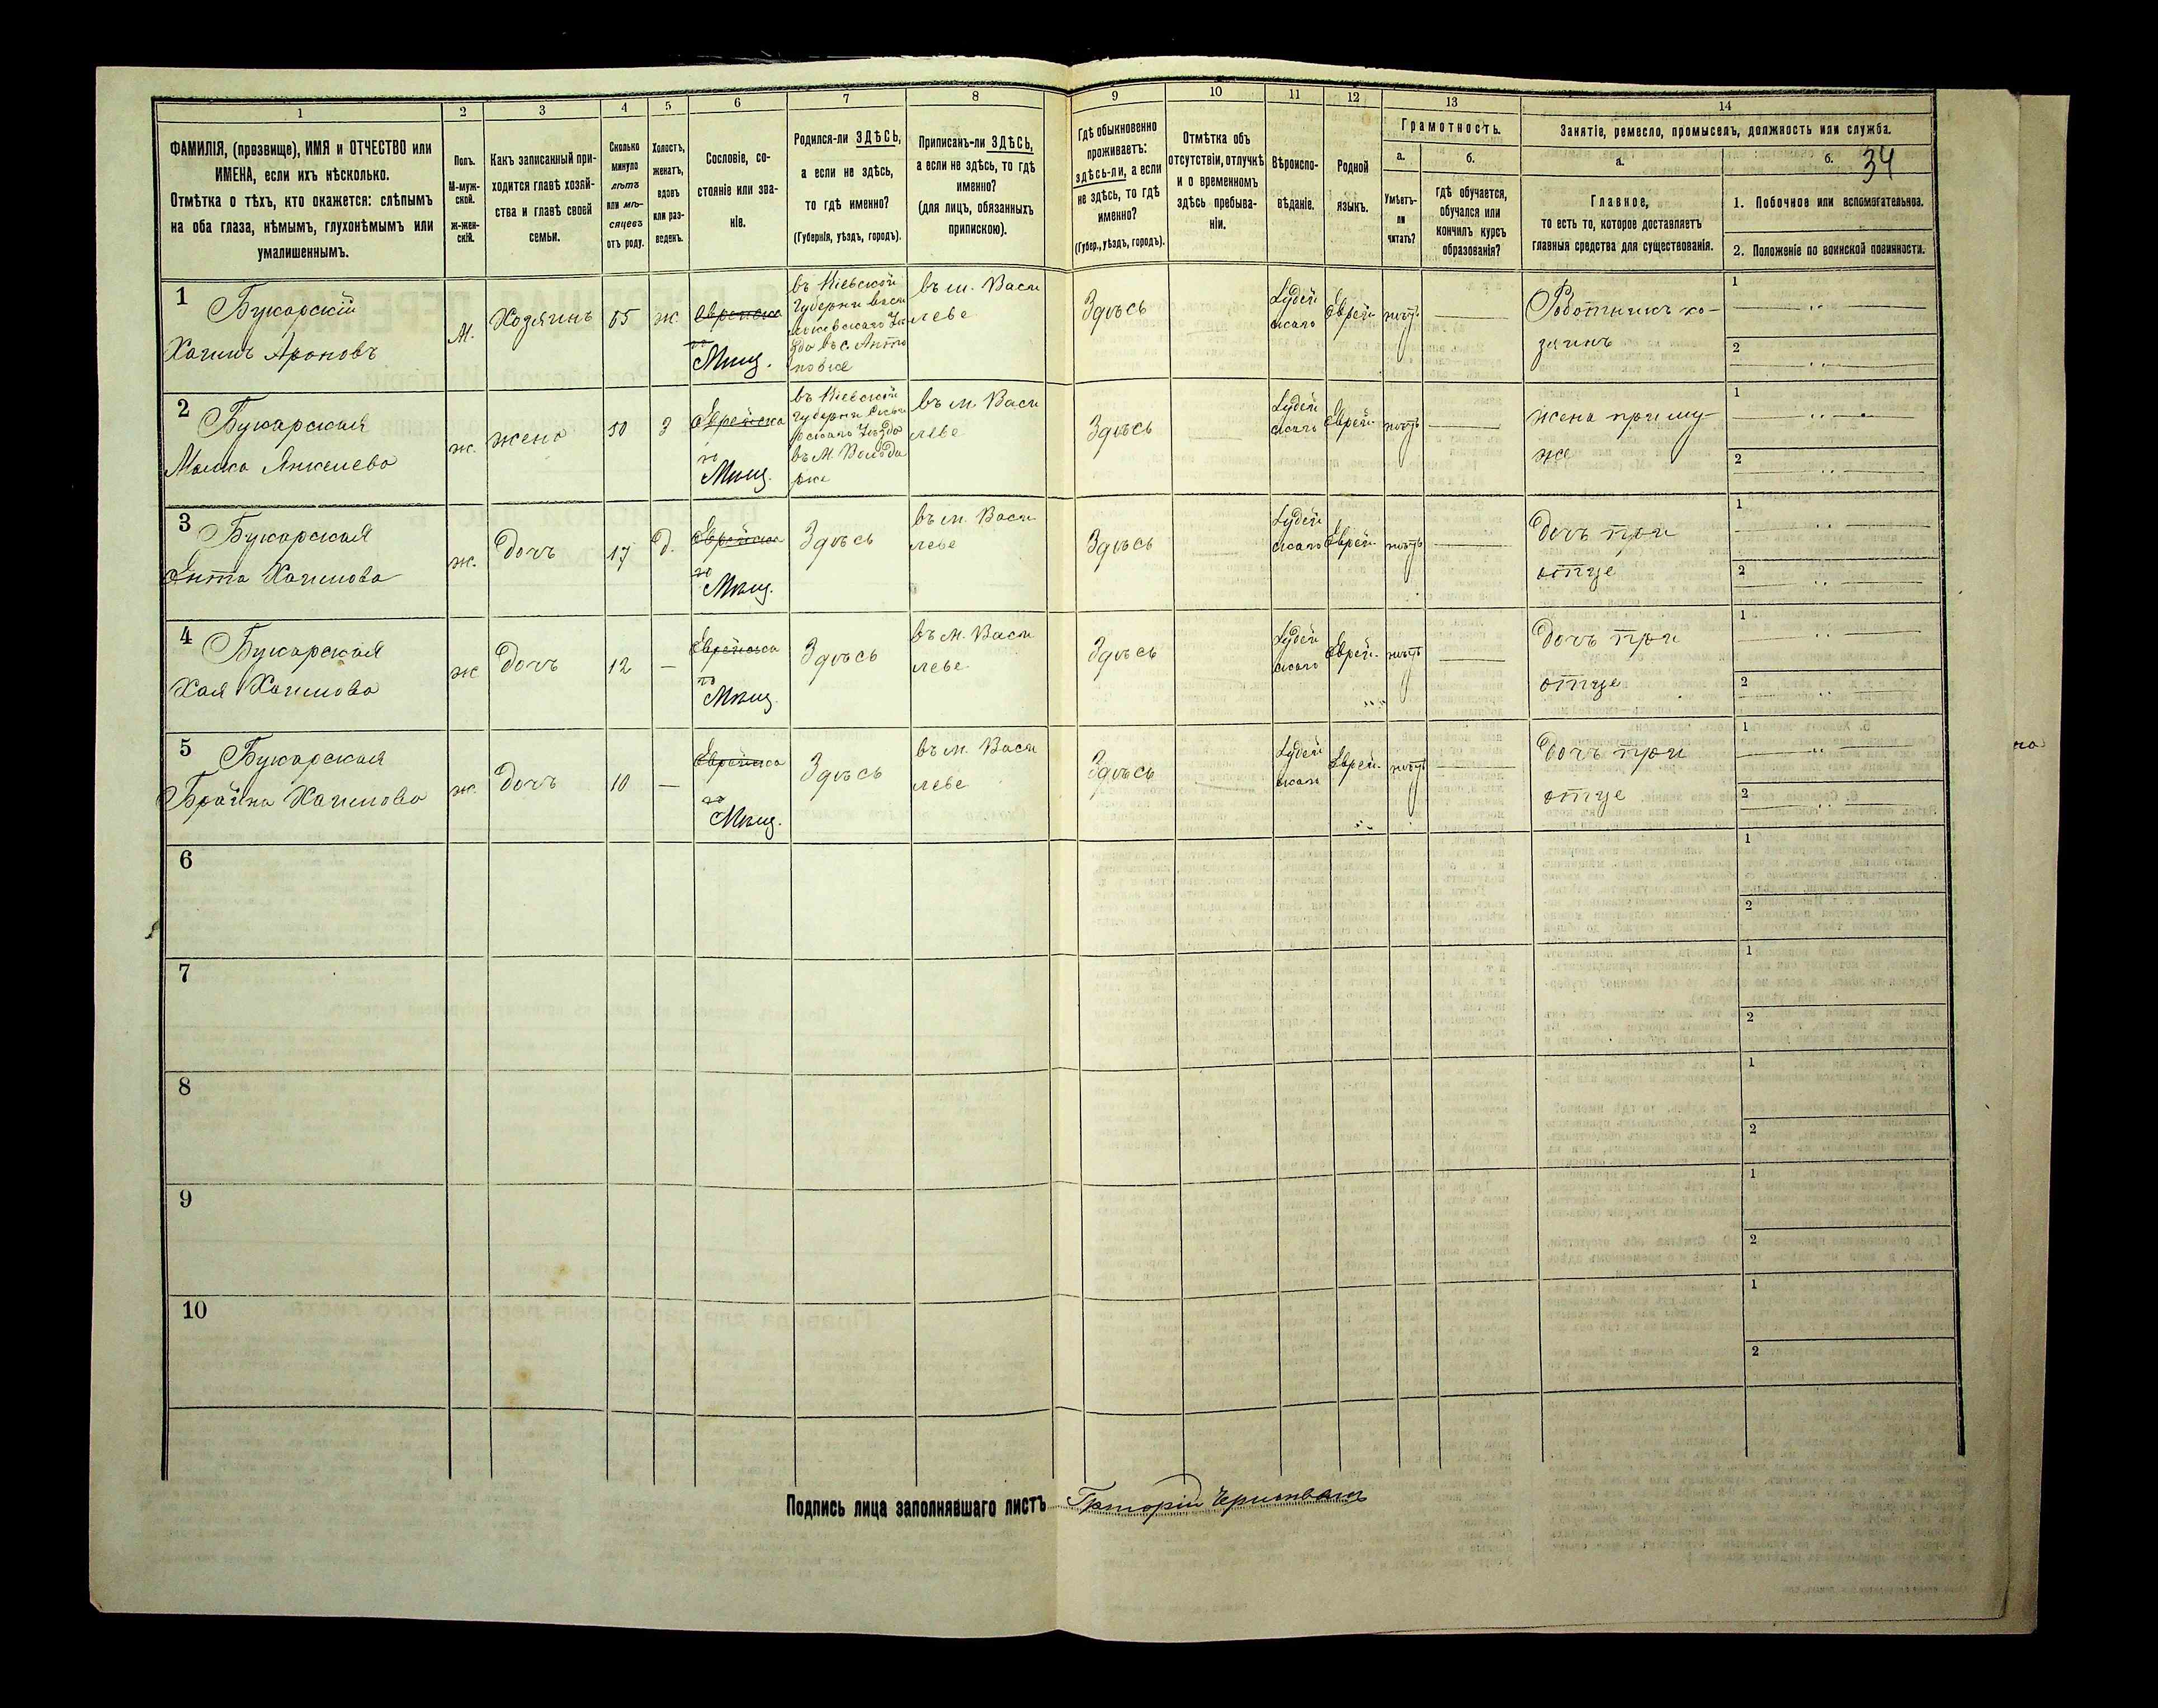 1
2
3
4
5
6
7
8
ФАМИЛІЯ, (прозвище), ИМЯ и ОТЧЕСТВО или
ИМЕНА, если ихъ нѣсколько.
Отмѣтка о тѣхъ, кто окажется: слѣпымъ
на оба глаза, нѣмымъ, глухонѣмымъ или
умалишеннымъ.
Полъ.
М-муж-
ской.
ж-жен-
скій.
Какъ записанный при-
ходится главѣ хозяй-
ства и главѣ своей
семьи.
Сколько
минуло
лѣтъ
или мѣ-
сяцевъ
отъ роду.
Холостъ,
женатъ,
вдовъ
или раз-
веденъ.
Сословіе, со-
стояніе или зва-
ніе.
Родился-ли ЗДѢСЬ,
а если не здѣсь,
то гдѣ именно?
(Губернія, уѣздъ, городъ).
Приписанъ-ли ЗДѢСЬ,
а если не здѣсь, то гдѣ
именно?
(для лицъ, обязанныхъ
припискою).
9
10
11
12
13
14
Гдѣ обыкновенно
проживаетъ:
здѣсь-ли, а если
не здѣсь, то гдѣ
именно?
(Губер., уѣздъ, городъ).
Отмѣтка объ
отсутствіи, отлучкѣ
и о временномъ
здѣсь пребыва-
ніи.
Вѣроиспо-
вѣданіе.
Родной
языкъ.
Грамотность.
а.
Умѣетъ-
ли
читать?
б.
гдѣ обучается,
обучался или
кончилъ курсъ
образованія?
Занятіе, ремесло, промыселъ, должность или служба.
а.
Главное,
то есть то, которое доставляетъ
главныя средства для существованія.
б.
34
1. Побочное или вспомогательное.
2. Положеніе по воинской повинности.
1
Букарскій
Хаимъ Ароновъ
М.
Хозяинъ
ж.
Мѣщ.
въ Кіевской
въ м. Васи
левѣ
Здѣсь
Іудей
скаго
Еврей
нѣтъ
Роботникъ хо-
зяинъ
1
2
2
Букарская
Малка Янкелева
ж.
жена
50
З
Еврейска
го
Мѣщ.
въ Кіевской
въ м. Васи
левѣ
Здѣсь
Іудей
скаго
Еврей.
нѣтъ
жена при му-
жѣ
1
2
3
Букарская
Ента Хаимова
ж.
дочъ
17
д.
Еврейска
го
Мѣщ.
Здѣсь
въ м. Васи
левѣ
Здѣсь
Іудей
скаго
Еврей.
нѣтъ
дочъ при
отцѣ
1
2
4
Букарская
Хая Хаимова
ж
дочъ
12
Еврейска
го
Мѣщ.
Здѣсь
въ м. Васи
левѣ
Здѣсь
Іудей
скаго
Еврей.
нѣтъ
дочъ при
отцѣ
1
2
5
Букарская
Брайна Хаимова
ж.
дочъ
10
Еврейска
го
Мѣщ.
Здѣсь
въ м. Васи
левѣ
Здѣсь
Іудей
скаго
Еврей.
нѣтъ
дочъ при
отцѣ
1
2
6
1
2
7
1
2
8
1
2
9
1
2
10
1
2
Подпись лица заполнявшаго листъ